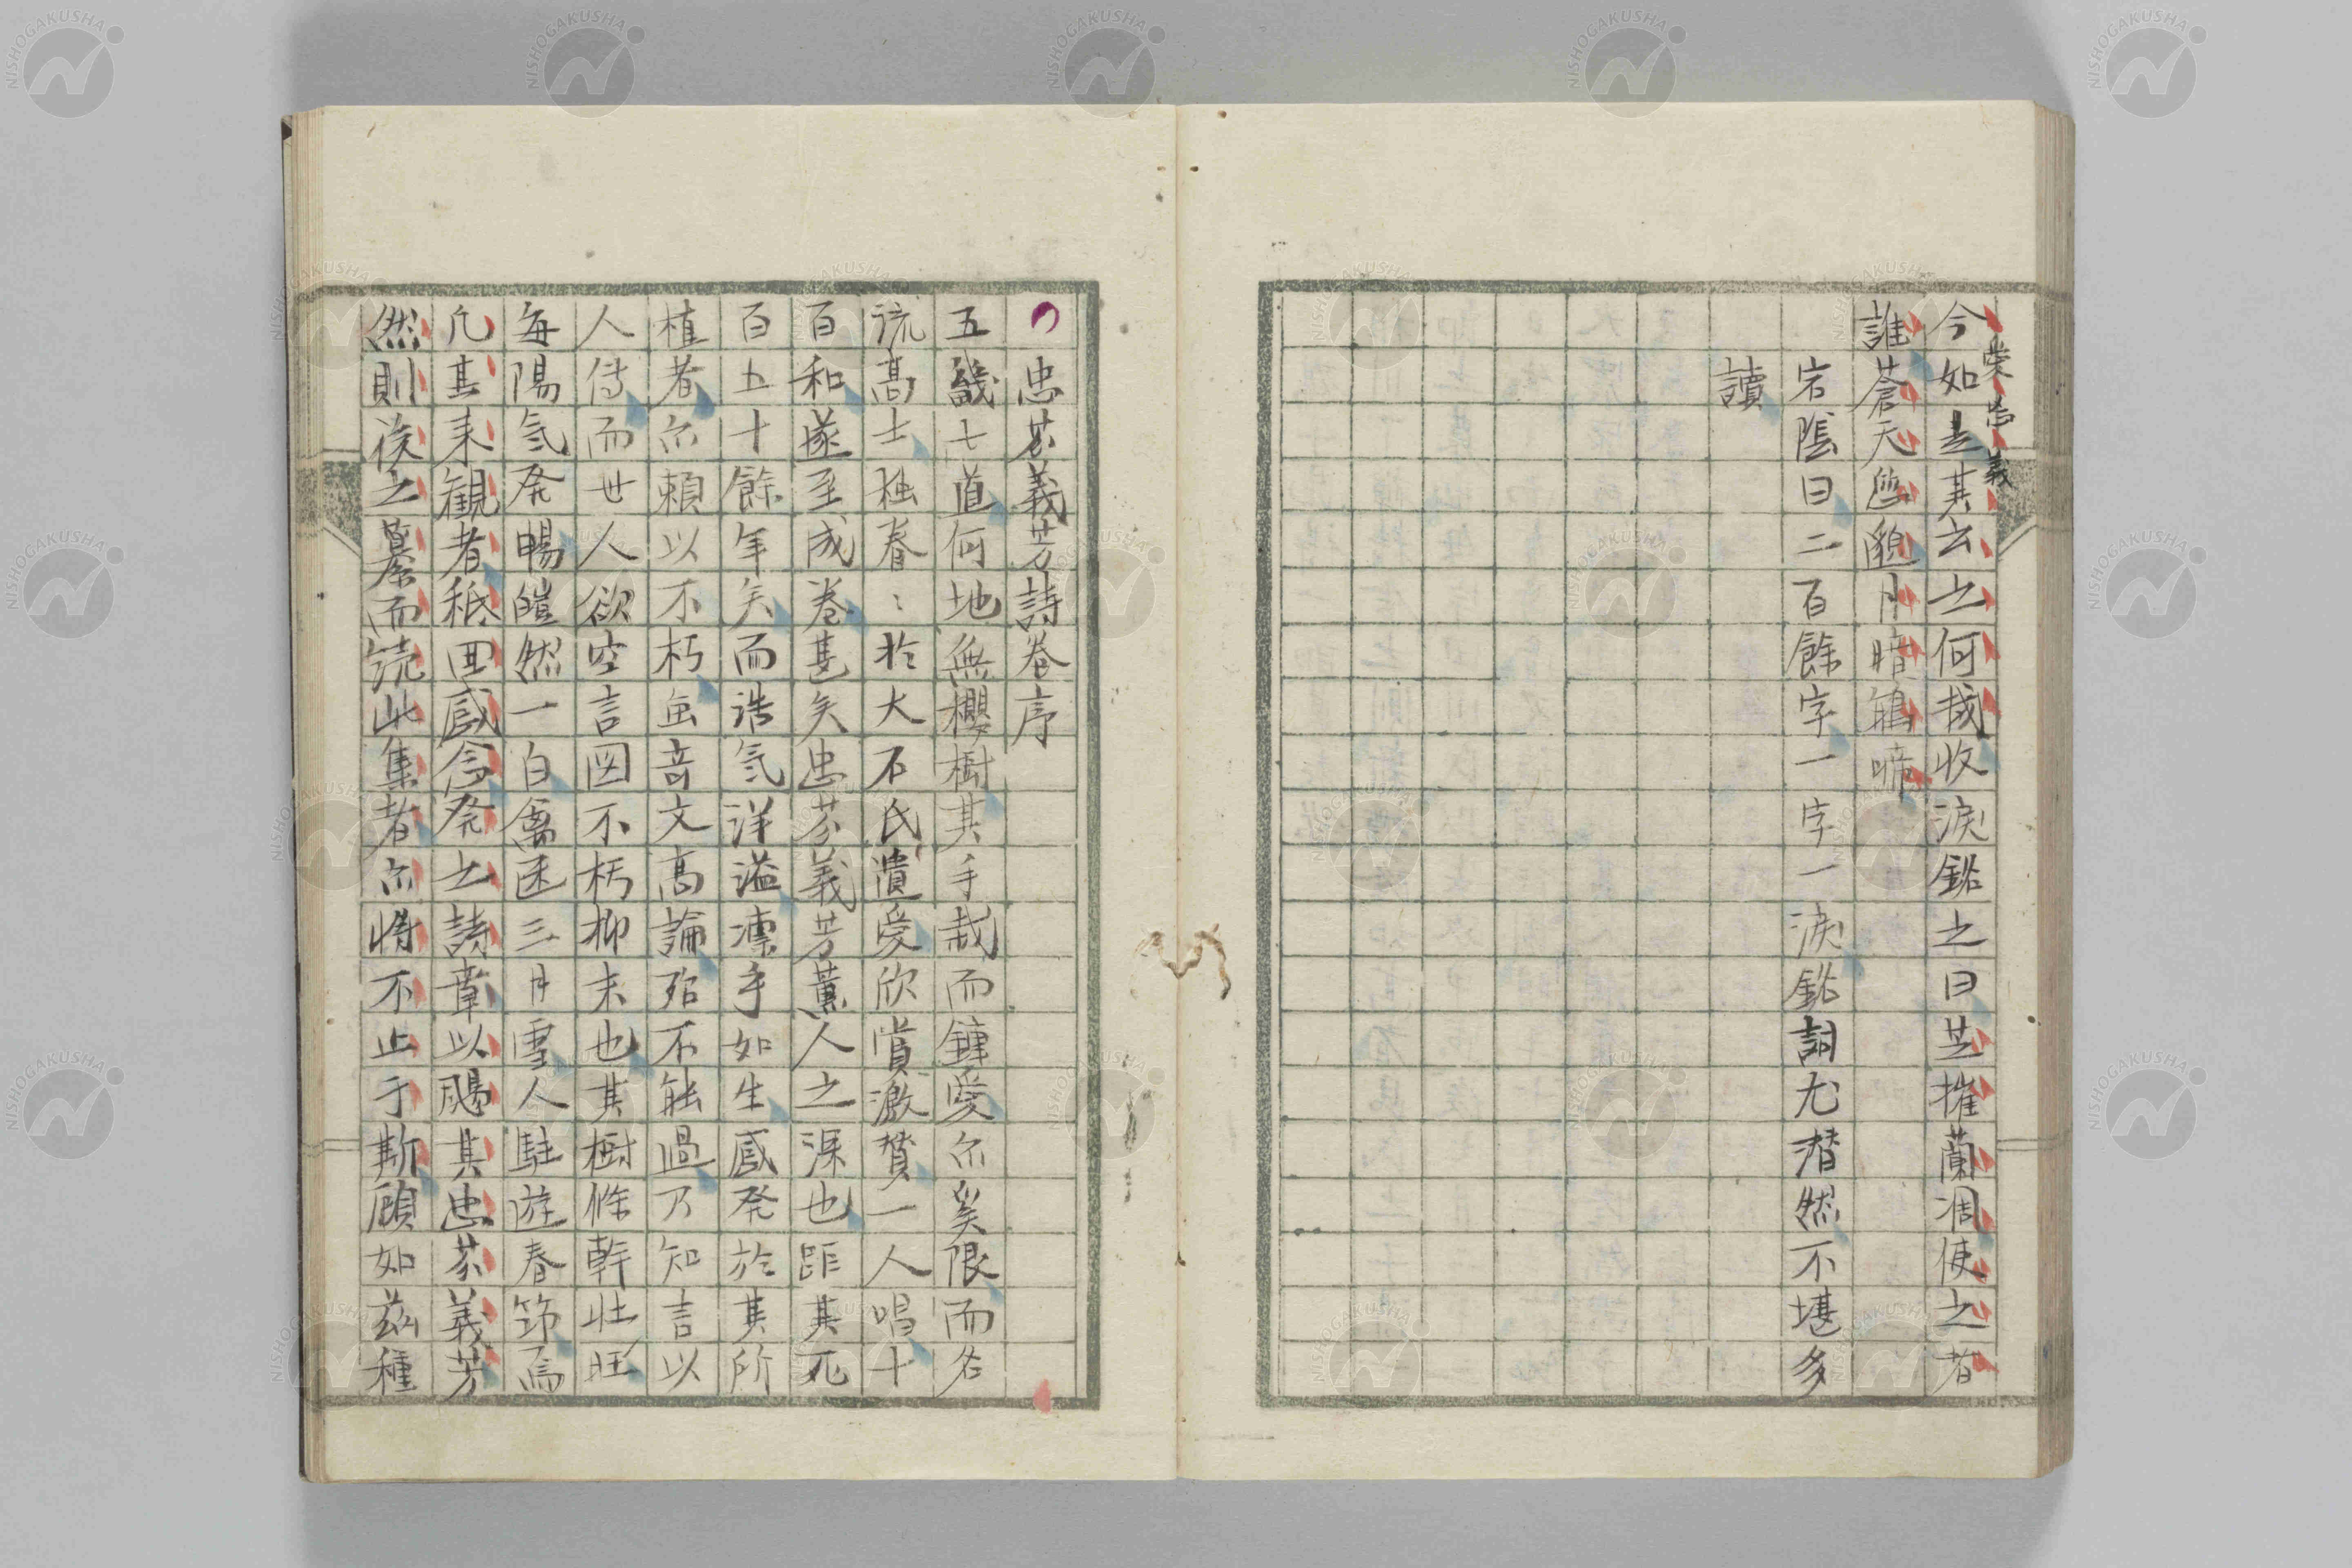 今如是其亡之何哉收淚銘之曰芝摧蘭凋使之者
愛忠義
誰蒼天悠邈月暗鵑啼
宕陰曰二百餘字一字一淚銘詞尤潸然不堪多
讀
忠芬義芳詩卷序
五畿七道何地無櫻樹其手栽而鍾愛亦奚限而名
流高士独眷〻於大石氏遺愛欣賞激賛一人唱十
百和遂至成卷甚矣忠芬義芳薫人之深也距其死
百五十餘年矣而浩気洋溢凛乎如生感発於其所
植者亦頼以不朽雖奇文高論殆不能過乃知言以
人傳而世人欲空言図不朽抑末也其樹條幹壮旺
每陽気発暢皚然一白奪囷三月雪人駐遊春節焉
凡其来観者秪回感念発之詩章以颺其忠芬義芳
然則後之纂而続此集者亦将不止于斯顧如茲種